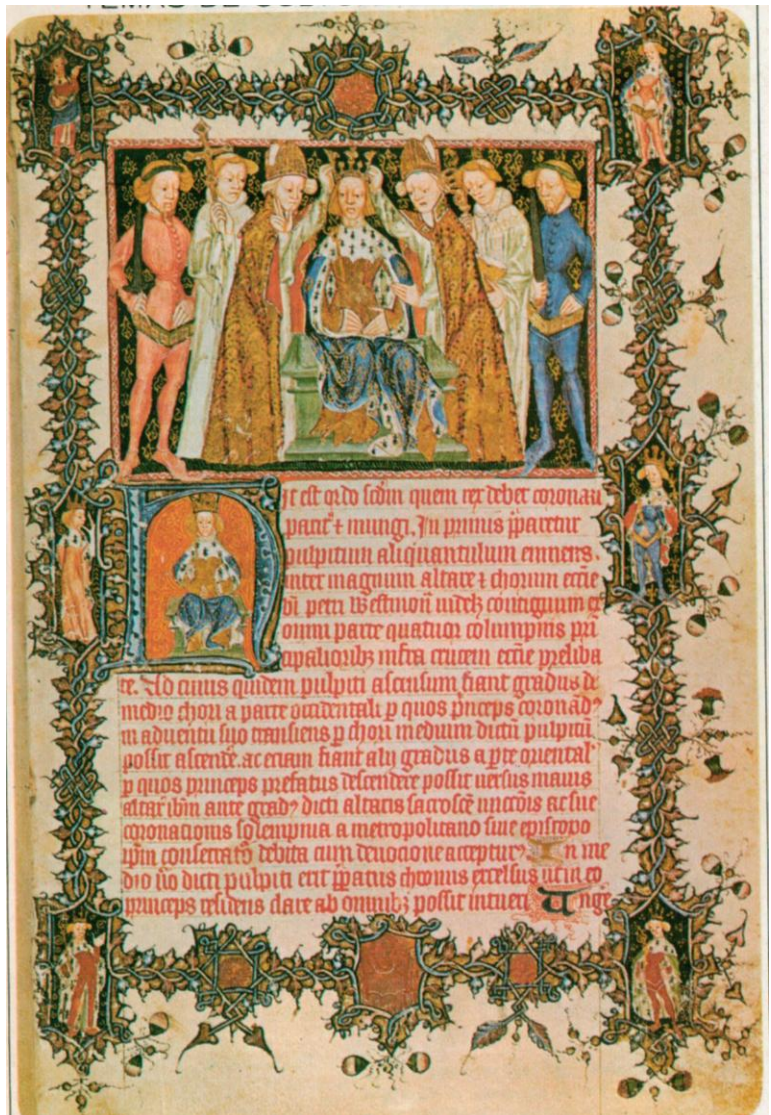 TEMAS DE
Hic est ordo scdm quem rex debet coronari
pariter & inungi. In primis pparetur
pulpitum aliquantulum eminens.
inter magnum altare & chorum eccie
bi petri Westmon videlz contiguum ex
omni parte quatuor columpnis pri
cipalioribz infra crucem eccie preliba
te. Ad cuius quidem pulpiti ascensum fiant gradus de
medio chori a parte occidentali p quos princeps coronad
in adventu suo transiens p chori medium dictu pulpitu
possit ascende. ac eciam fiant alij gradus a pte oriental
p quos princeps prefatus descendere possit versus maius
altar ibm ante grad dicti altaris sacrosce unccois ac sue
coronationis solempnia a metropolitano sive episcopo
ipm consecrat debita cum devocione acceptur In me
dio vo dicti pulpiti erit ppatus thronus excelsus ut in eo
princeps residens clare ab omnibz possit intueri